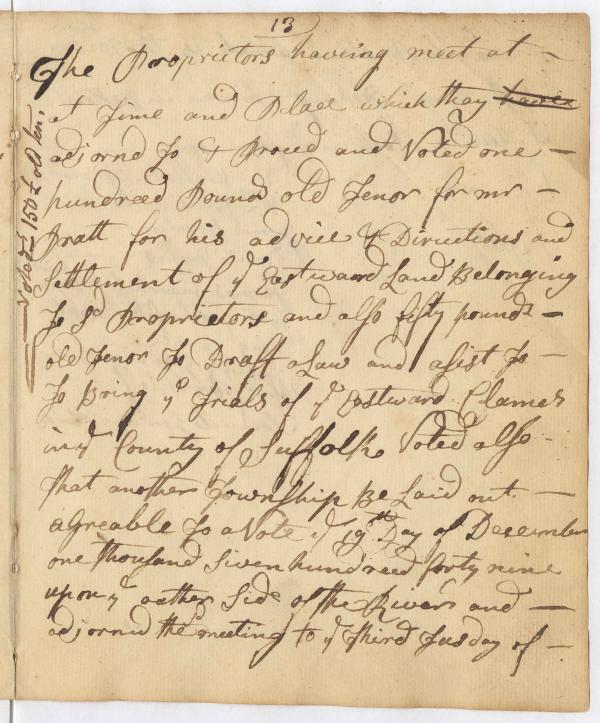 13
The Proprietors haveing meet at —
at Time and Place which thay have
adjornd To & Proceed and Voted one —
hundreed Pound old Tenor for mr —
Pratt for his advice & Dirictions and
Settlement of ye Eastward Land Belonging
To sd Proprietors and also fifty pounds —
old Tenor To Draft a Law and asist To —
To Bring ye Trials of ye Eastward Clames
in ye County of Suffolk Voted also
that another Township Be Laid out —
agreable To a Vote ye 19th Day of December
one thousand Seven hundreed forty nine
upon ye oather Side of the River and —
adjornid the meeting to ye Third Tusday of —
Voted 150£ old ten.